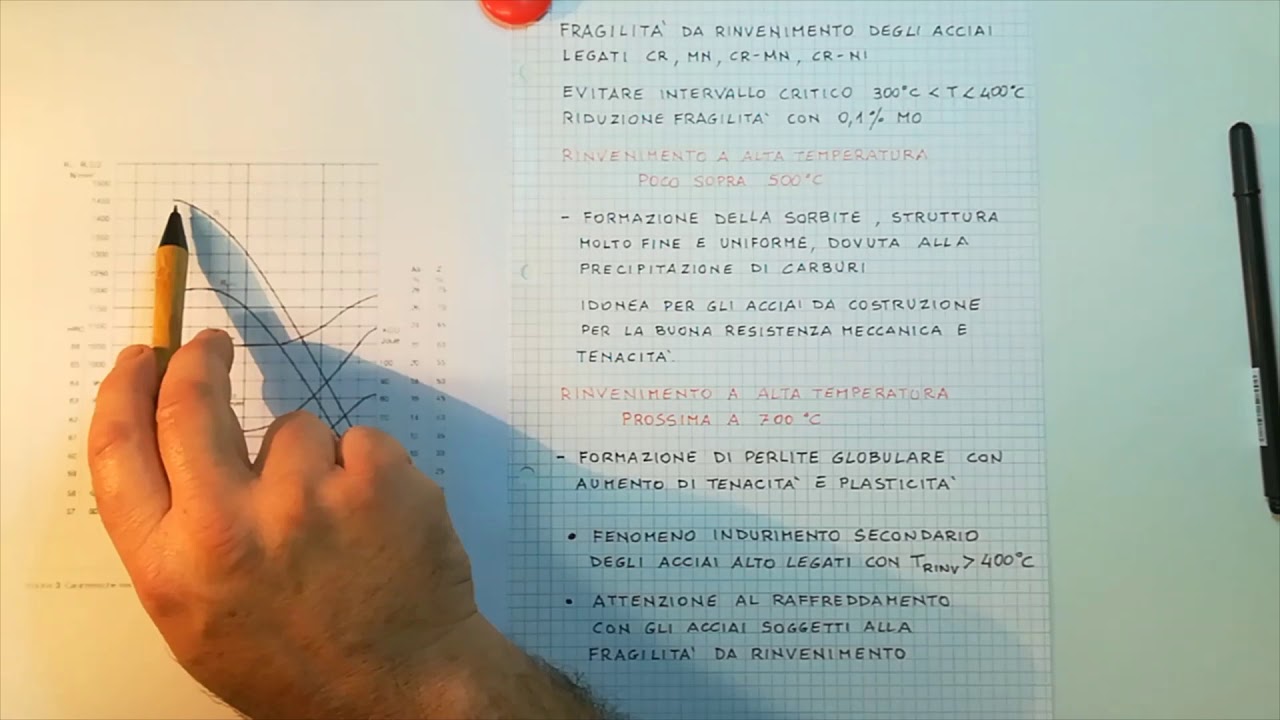 FRAGILITA' DA RINVENIMENTO DEGLI ACCIAI
LEGATI CR, MN, CR-MN, CR-NI
EVITARE INTERVALLO CRITICO 300°C < T < 400°C
RIDUZIONE FRAGILITA' CON 0,1% MO
RINVENIMENTO A ALTA TEMPERATURA
POCO SOPRA 500°C
- FORMAZIONE DELLA SORBITE, STRUTTURA
MOLTO FINE E UNIFORME, DOVUTA ALLA
PRECIPITAZIONE DI CARBURI
IDONEA PER GLI ACCIAI DA COSTRUZIONE
PER LA BUONA RESISTENZA MECCANICA E
TENACITA'.
RINVENIMENTO A ALTA TEMPERATURA
PROSSIMA A 700 °C
- FORMAZIONE DI PERLITE GLOBULARE CON
AUMENTO DI TENACITA' E PLASTICITA'
• FENOMENO INDURIMENTO SECONDARIO
DEGLI ACCIAI ALTO LEGATI CON TRINV > 400°C
• ATTENZIONE AL RAFFREDDAMENTO
CON GLI ACCIAI SOGGETTI ALLA
FRAGILITA' DA RINVENIMENTO